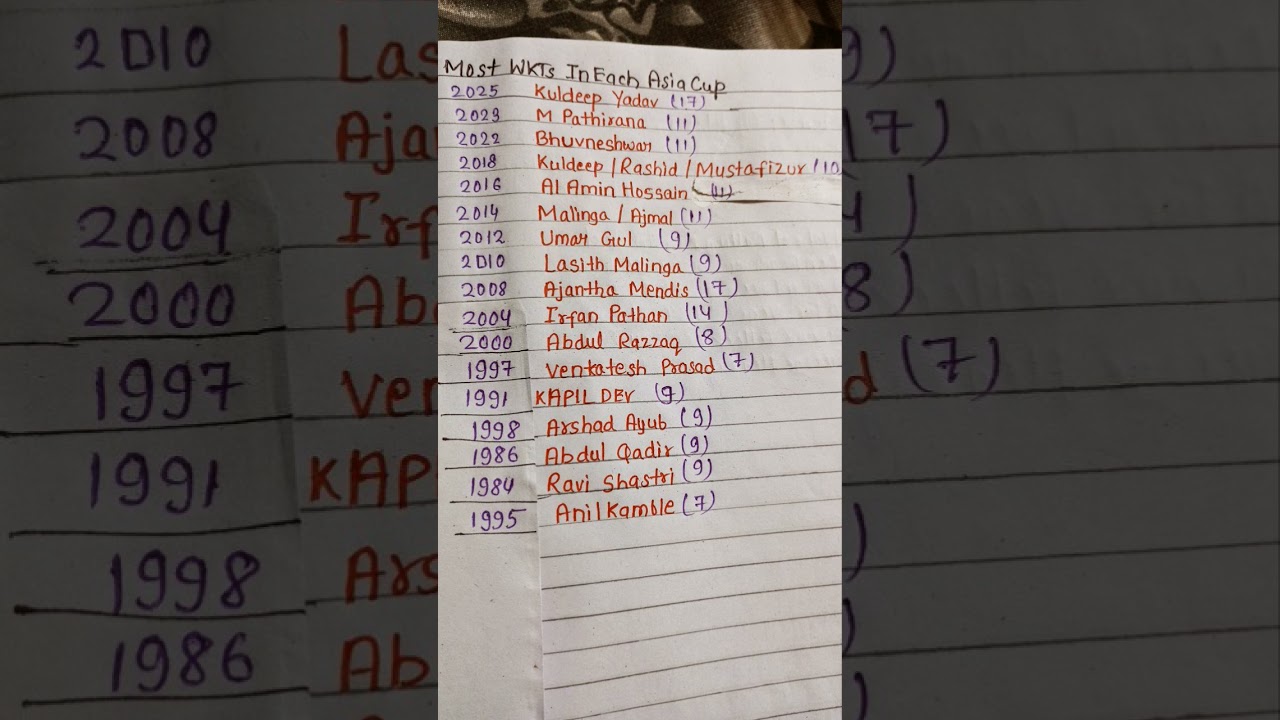 Most WKTs In Each Asia Cup
2025 Kuldeep Yadav (17)
2023 M Pathirana (11)
2022 Bhuvneshwar (11)
2018 Kuldeep / Rashid / Mustafizur (10
2016 Al Amin Hossain (11)
2014 Malinga / Ajmal (11)
2012 Umar Gul (9)
2010 Lasith Malinga (9)
2008 Ajantha Mendis (17)
2004 Irfan Pathan (14)
2000 Abdul Razzaq (8)
1997 Venkatesh Prasad (7)
1991 KAPIL DEV (9)
1998 Arshad Ayub (9)
1986 Abdul Qadir (9)
1984 Ravi Shastri (9)
1995 Anil Kamble (7)
2010 Las 9)
2008 Aja 17)
2004 Irf 4)
2000 Ab 8)
1997 Ven d (7)
1991 KAP
1998 Ars )
1986 Ab )